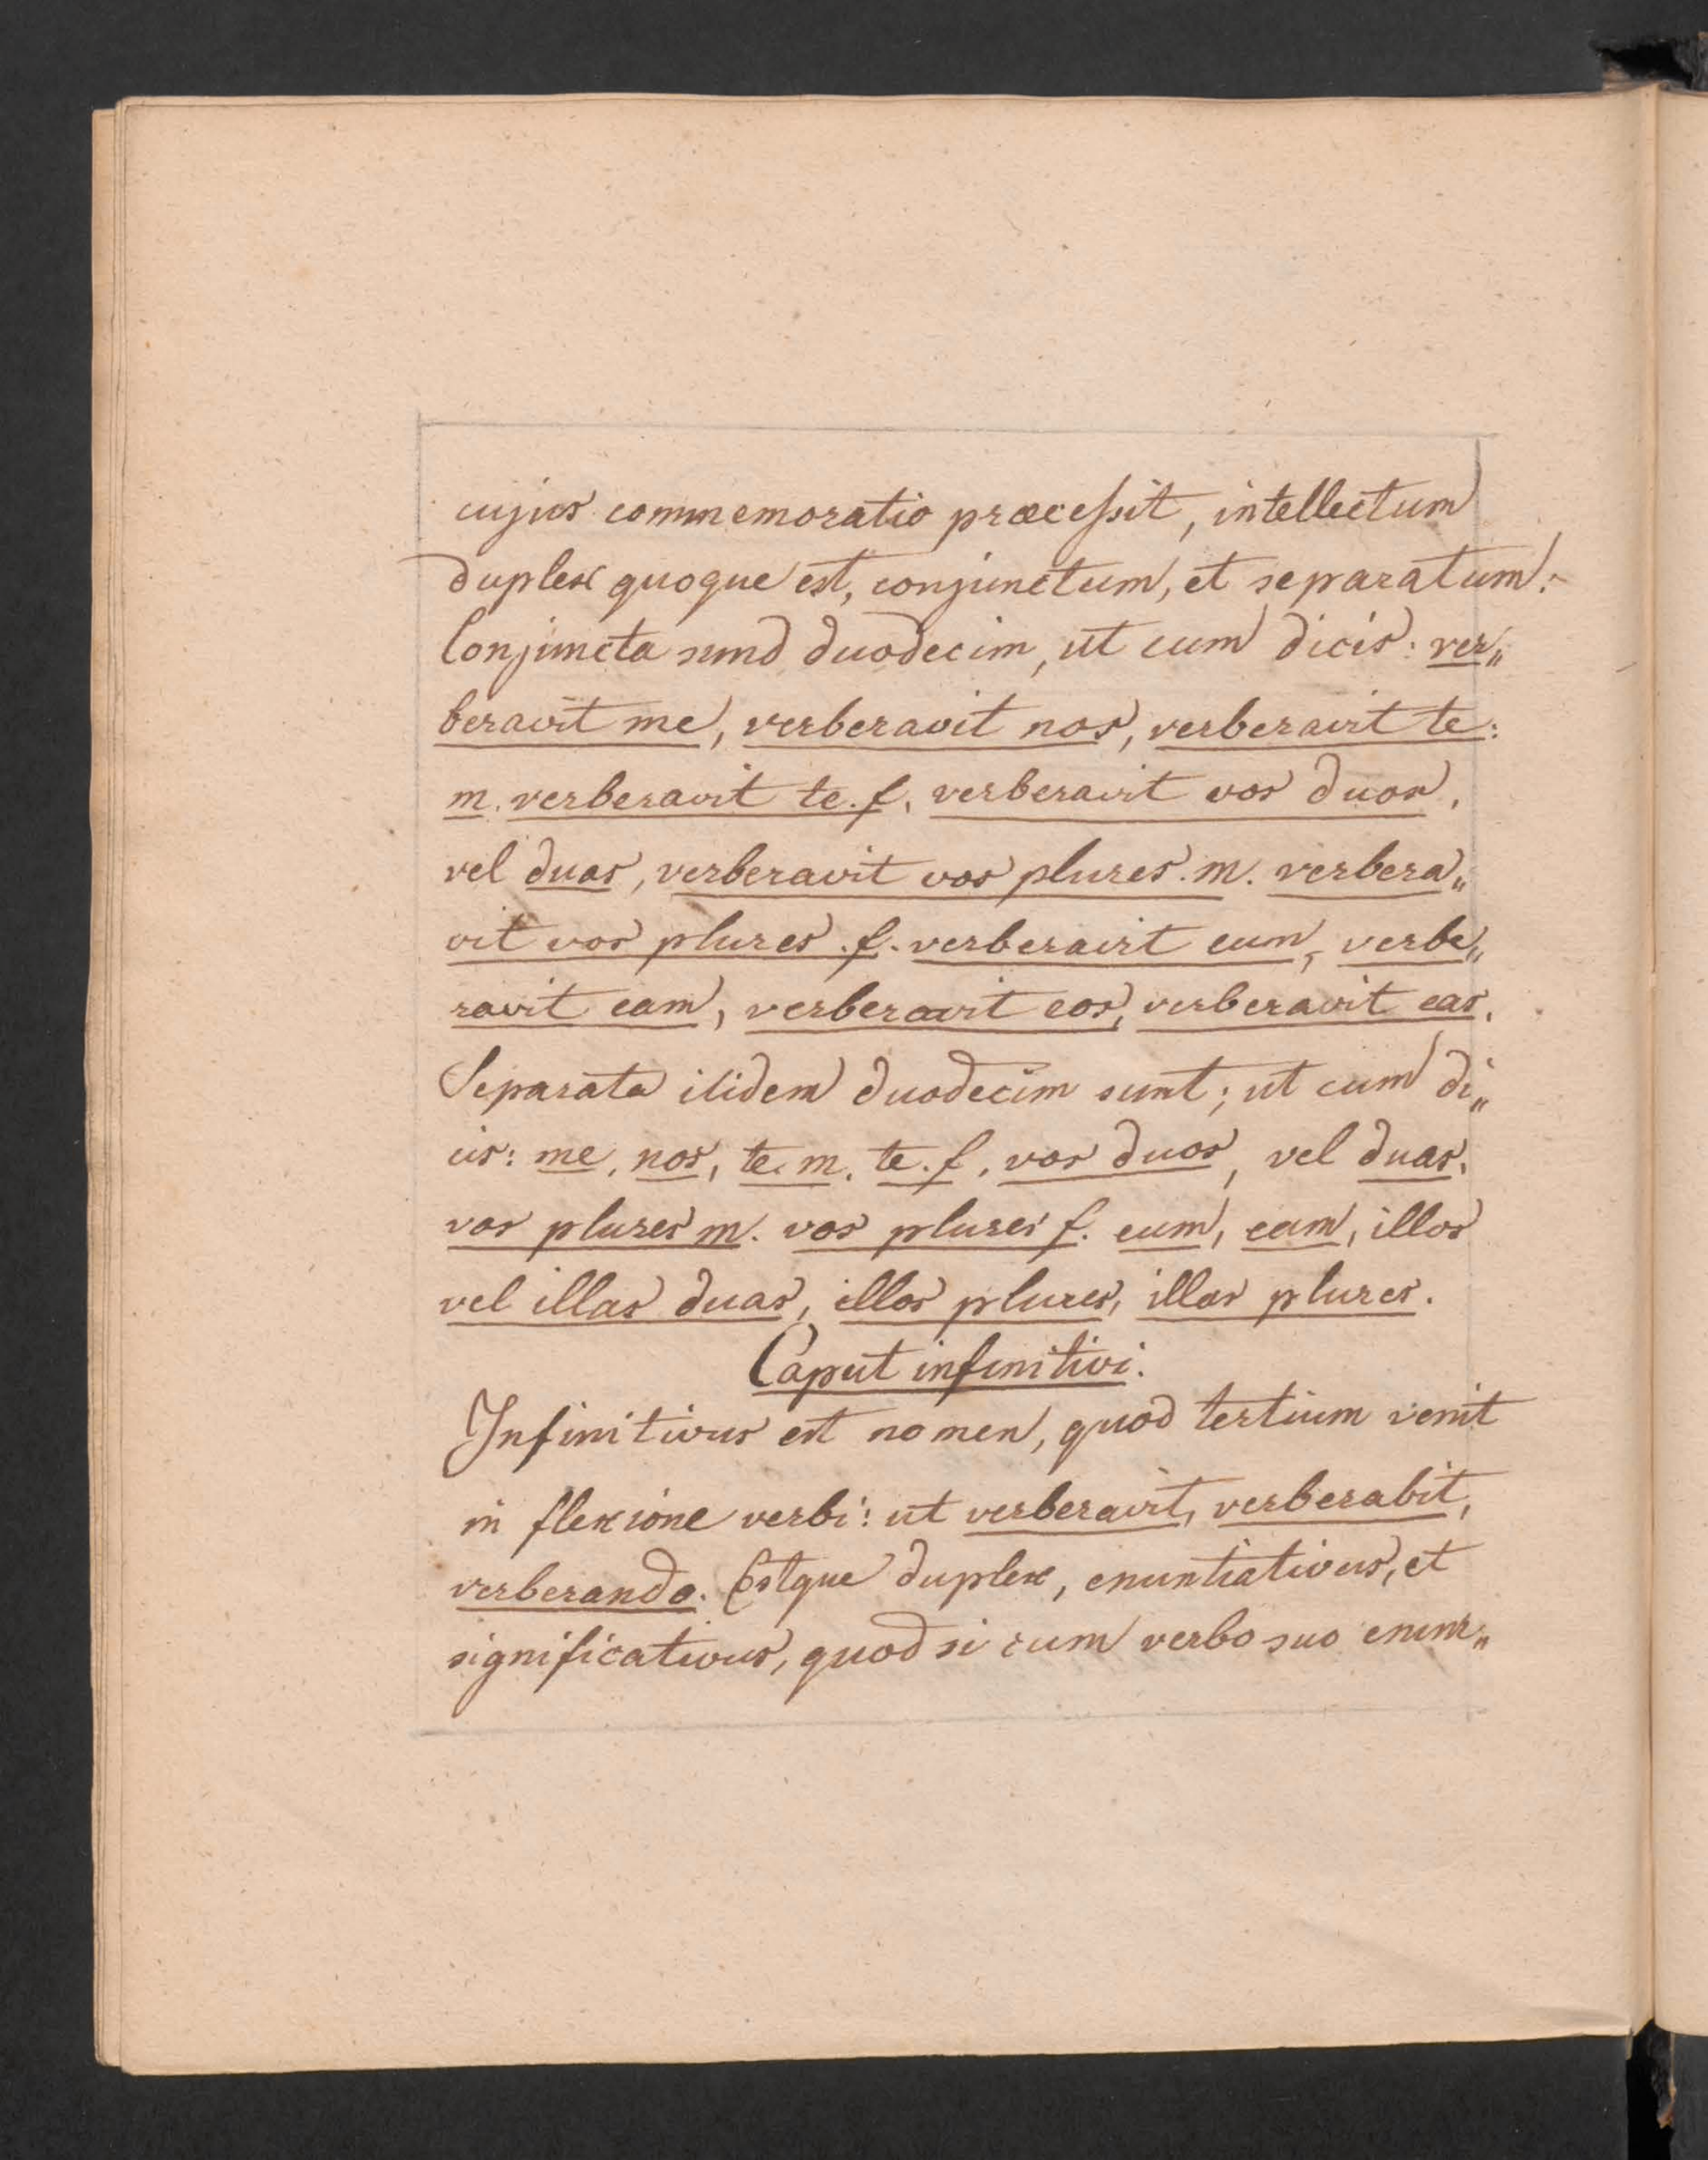 cujus commemoratio præcessit, intellectum
duplex quoque est, conjunctum, et separatum:
Conjuncta sund duodecim, ut cum dicis: ver„
beravit me, verberavit nos, verberavit te:
m. verberavit te. f. verberavit vos duos,
vel duas, verberavit vos plures. m. verbera„
vit vos plures. f. verberavit eum, verbe„
ravit eam, verberavit eos, verberavit eas.
Separata itidem duodecim sunt; ut cum di„
cis: me, nos, te. m. te. f. vos duos, vel duas,
vos plures m. vos plures f. eum, eam, illos
vel illas duas, illos plures, illas plures.
Caput infinitivi.
Infinitivus est nomen, quod tertium venit
in flexione verbi: ut verberavit, verberabit,
verberando. Estque duplex, enuntiativus, et
significativus, quod si cum verbo suo enun„